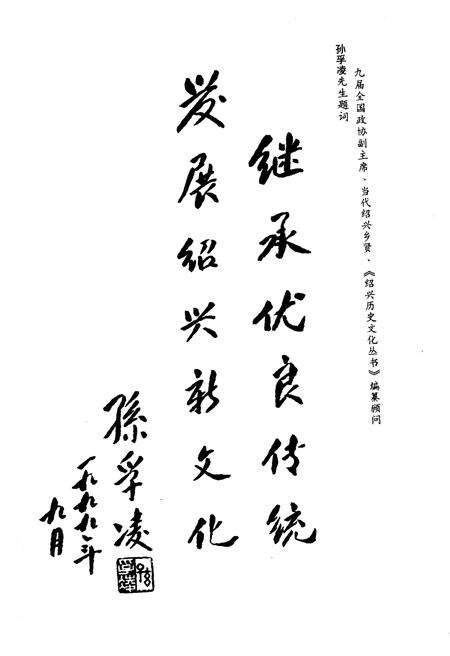 九届全国政协副主席、当代绍兴乡贤、《绍兴历史文化丛书》编纂顾问
孙孚凌先生题词
继承优良传统
发展绍兴新文化
孫孚凌
一九九九年
九月